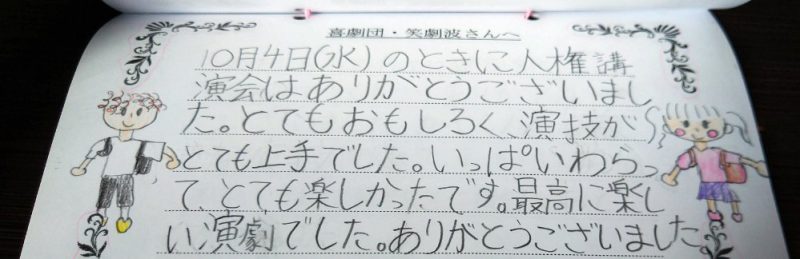 喜劇団・笑劇波さんへ
10月4日(水)のときに人権講
演会はありがとうございまし
た。とてもおもしろく、演技が
とても上手でした。いっぱいわらっ
て、とても楽しかったです。最高に楽し
い演劇でした。ありがとうございました